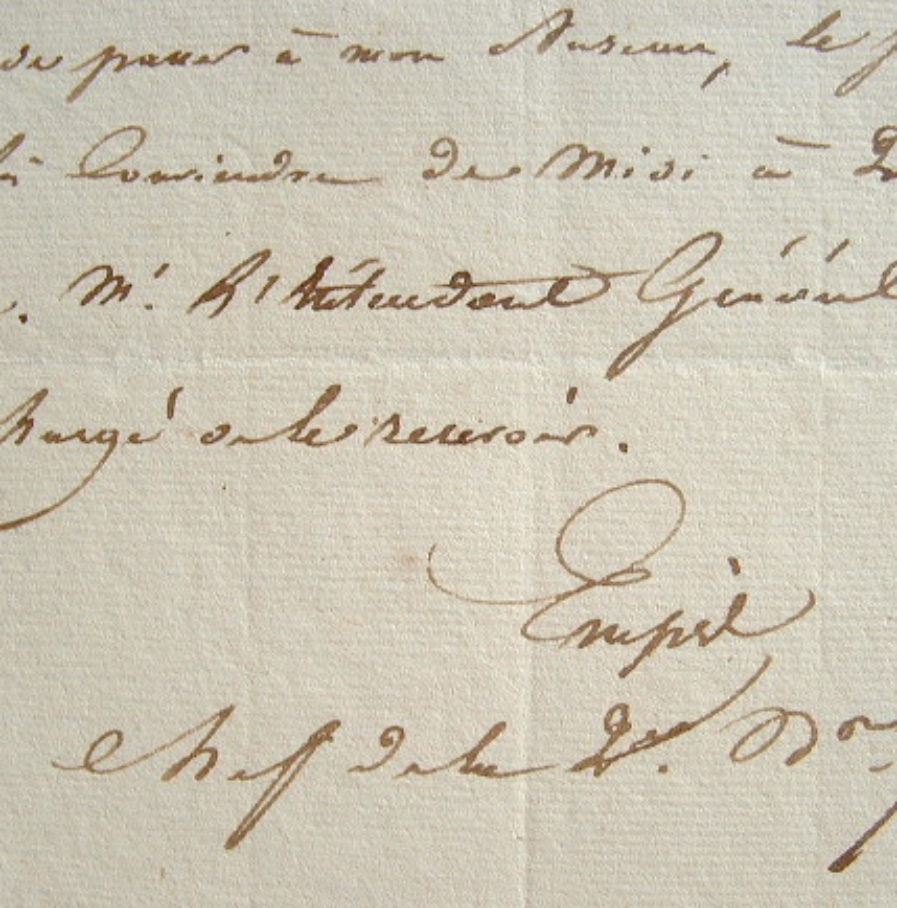 de passer à mon Bureau, le j
lui Conviendra de Midi à 2
. Mr. l'Intendant Général
hargé de le recevoir.
Empis
Chef de la 2e. Don